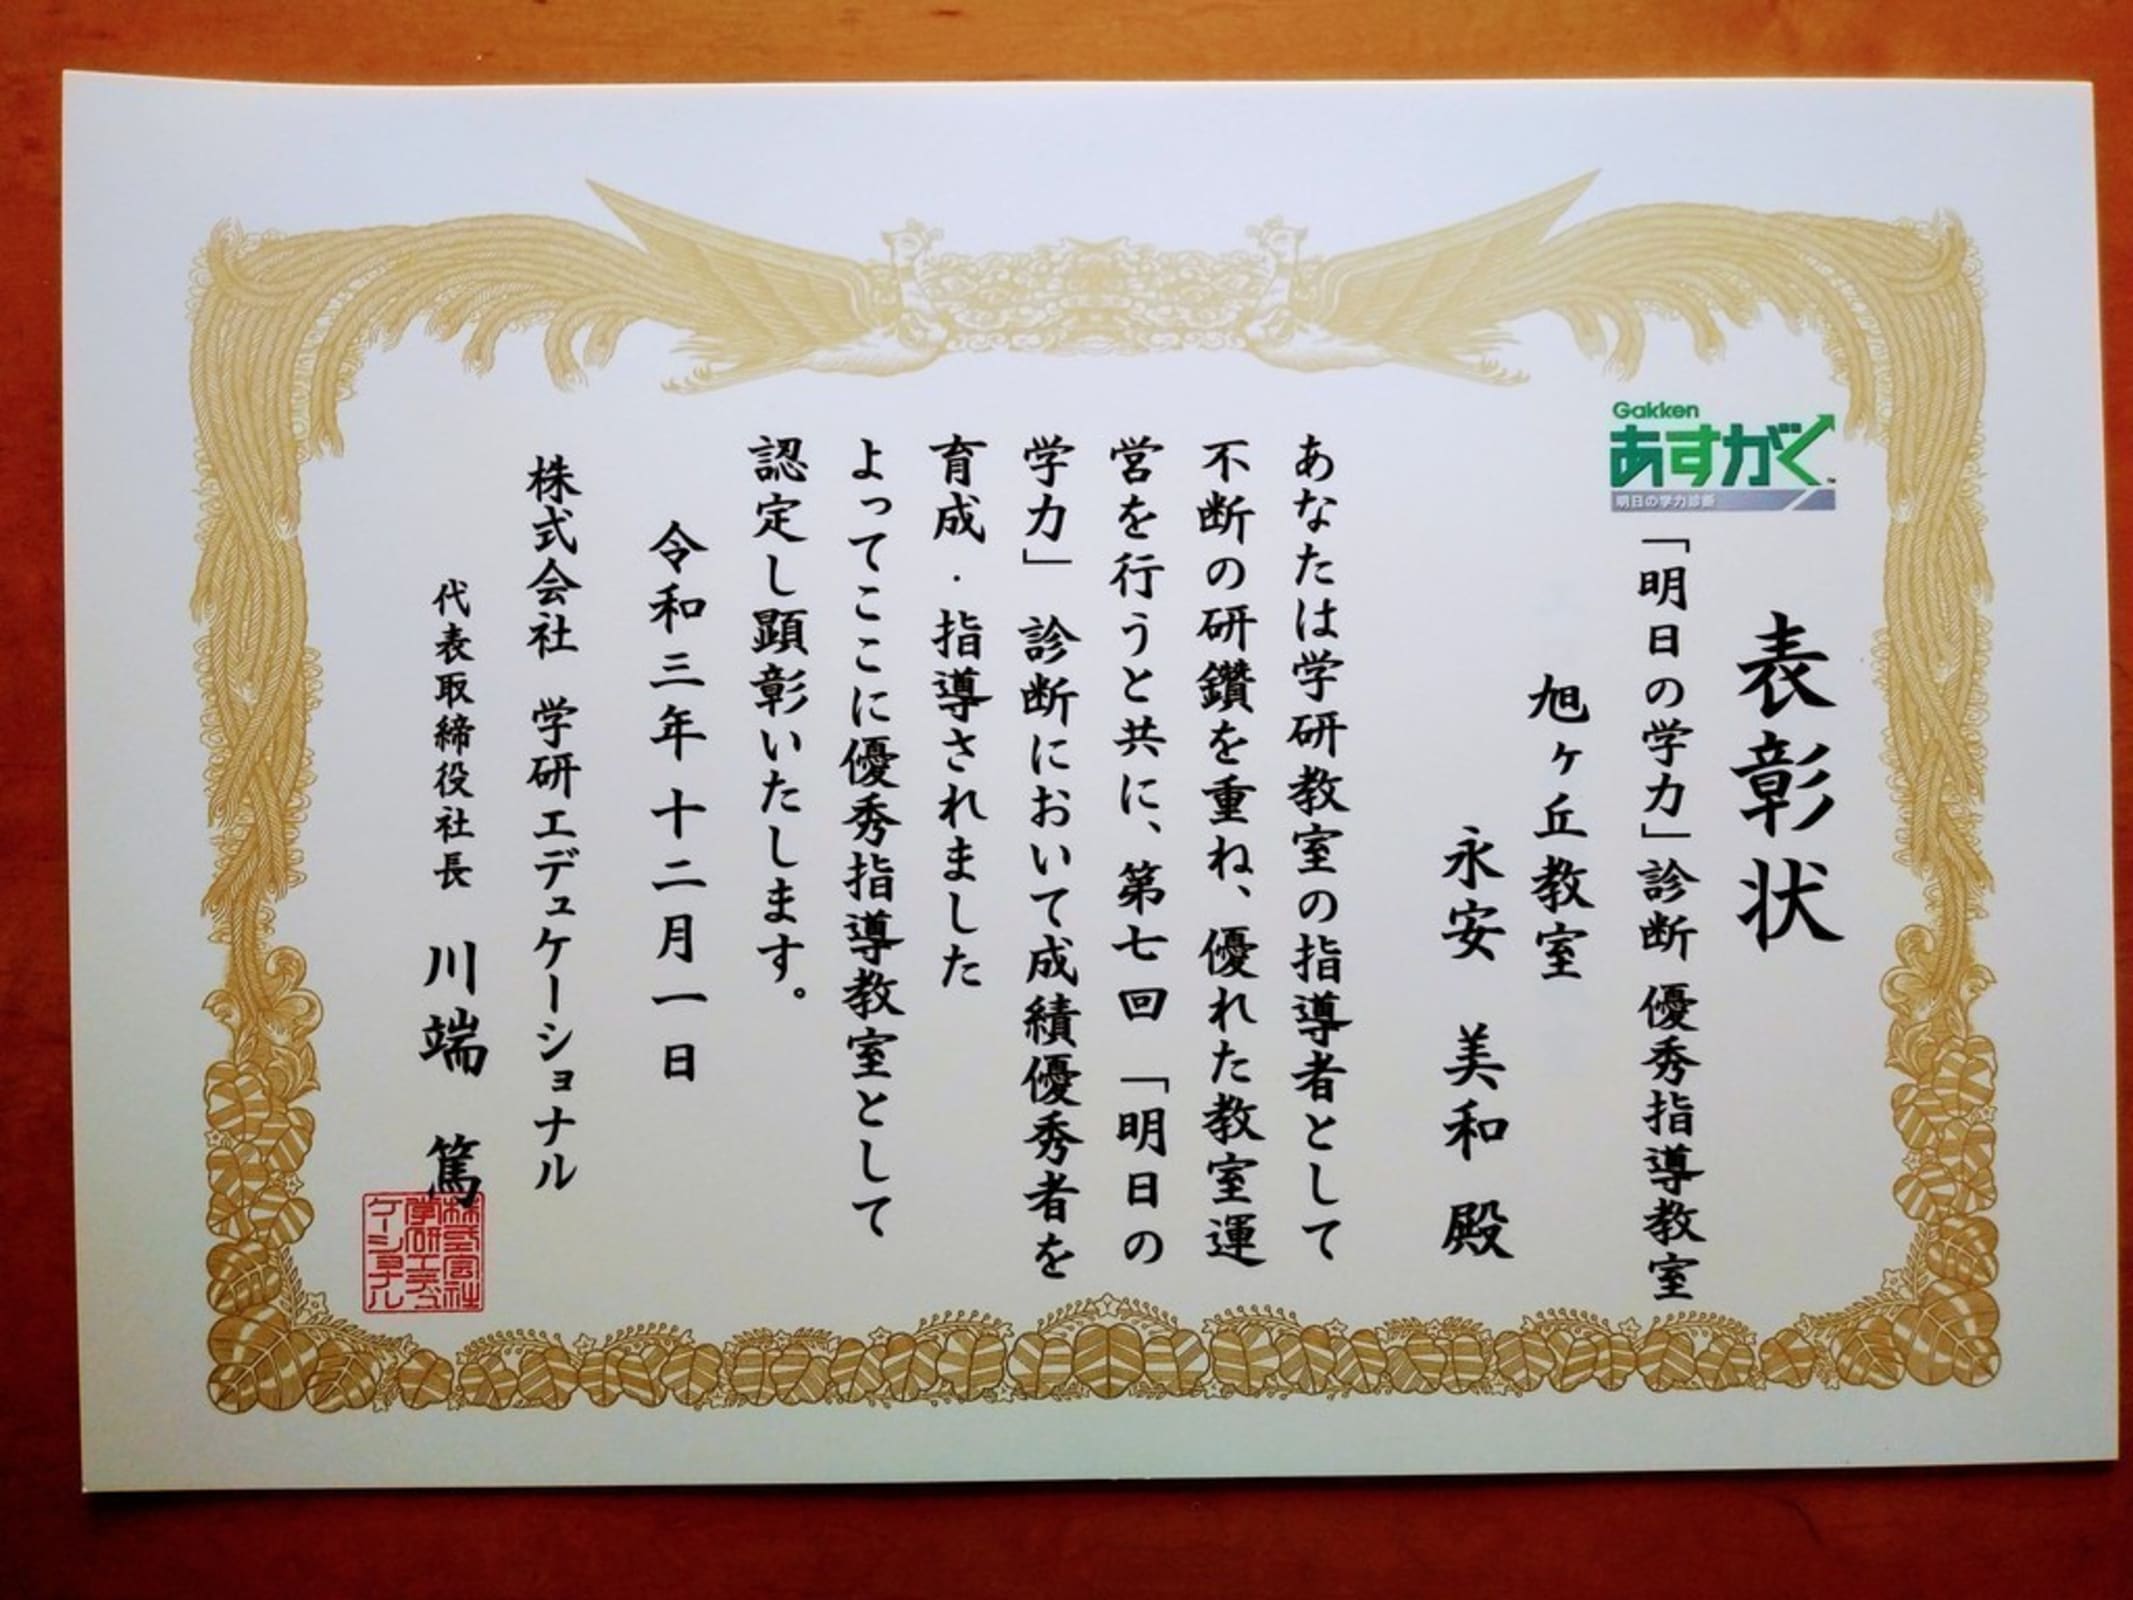 表彰状
Gakken
あすがく™
明日の学力診断
「明日の学力」診断 優秀指導教室
旭ヶ丘教室
永安 美和 殿
あなたは学研教室の指導者として
不断の研鑽を重ね、優れた教室運
営を行うと共に、第七回「明日の
学力」診断において成績優秀者を
育成・指導されました
よってここに優秀指導教室として
認定し顕彰いたします。
令和三年十二月一日
株式会社 学研エデュケーショナル
代表取締役社長 川端 篤
株式会社
学研エデュ
ケーショナル